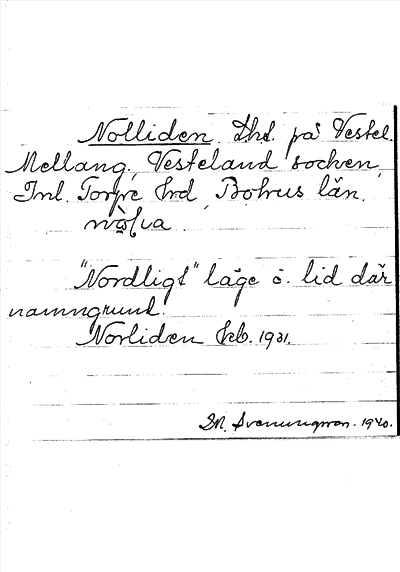 Nolliden. Lht. på Vestel.
Mellang, Vesteland socken,
Inl. Torpe hrd, Bohus län.
"Nordligt" läge o. lid där
namngrund.
Norliden Jeb. 1931.
M. Svenungsson. 1940.